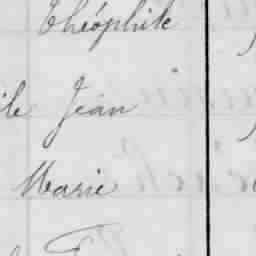 Théophile
Jean
Marie